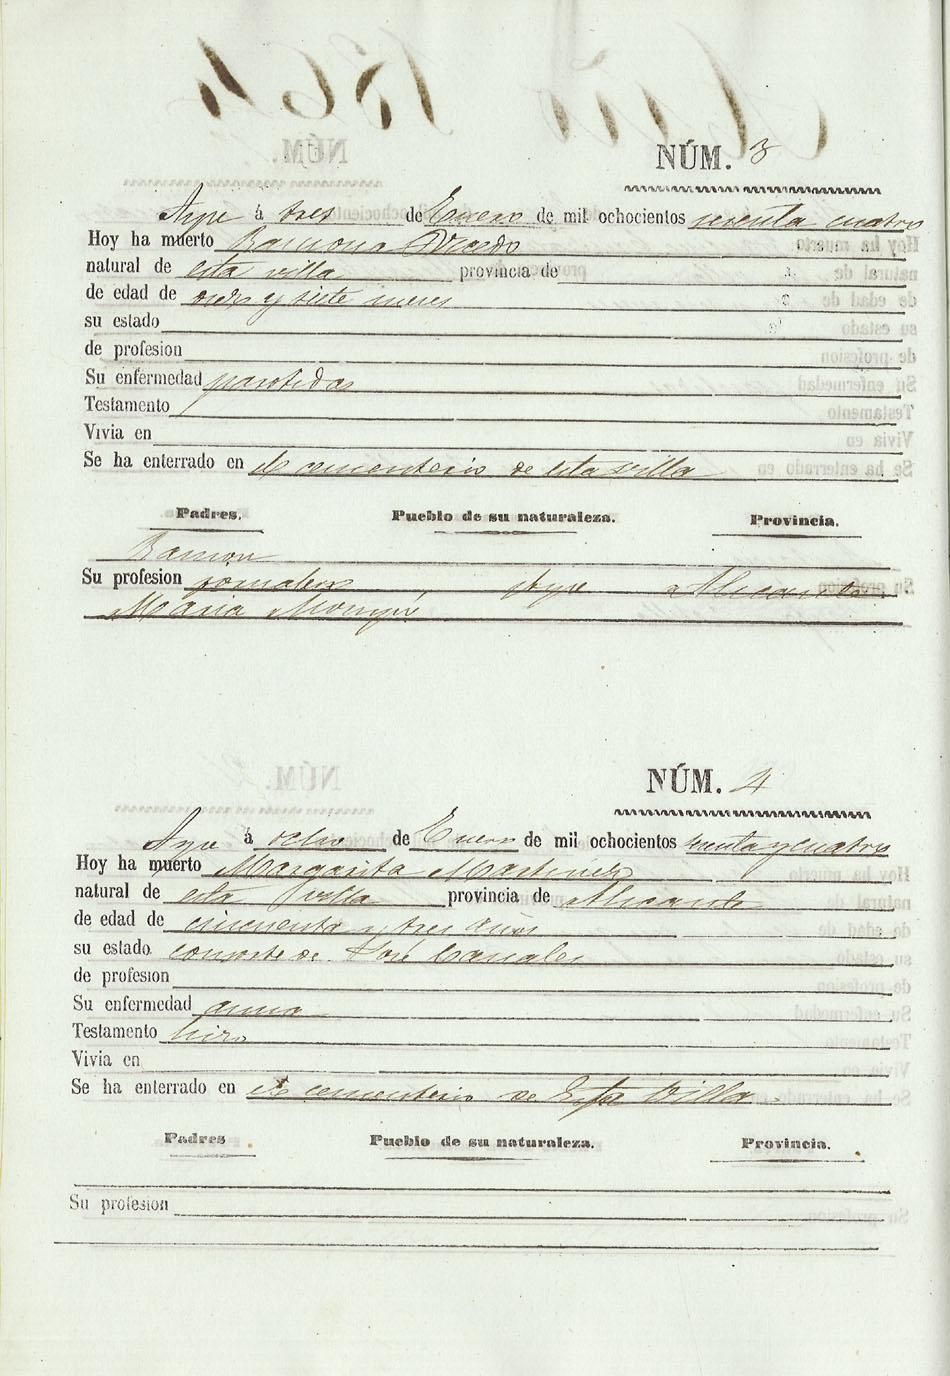 NÚM. 3
Aspe á tres de Enero de mil ochocientos sesenta cuatro
Hoy ha muerto Ramona
natural de esta villa provincia de
de edad de y siete meses
su estado
de profesion
Su enfermedad parotidas
Testamento
Vivia en
Se ha enterrado en el cementerio de esta villa
Padres. Pueblo de su naturaleza. Provincia.
Ramon
Su profesion jornalero Aspe Alicante
Maria
NÚM. 4
Aspe á ocho de Enero de mil ochocientos sesenta y cuatro
Hoy ha muerto Margarita Martinez
natural de esta villa provincia de Alicante
de edad de cincuenta y tres años
su estado consorte de José Canales
de profesion
Su enfermedad asma
Testamento hizo
Vivia en
Se ha enterrado en el cementerio de Esta Villa.
Padres Pueblo de su naturaleza. Provincia.
Su profesion